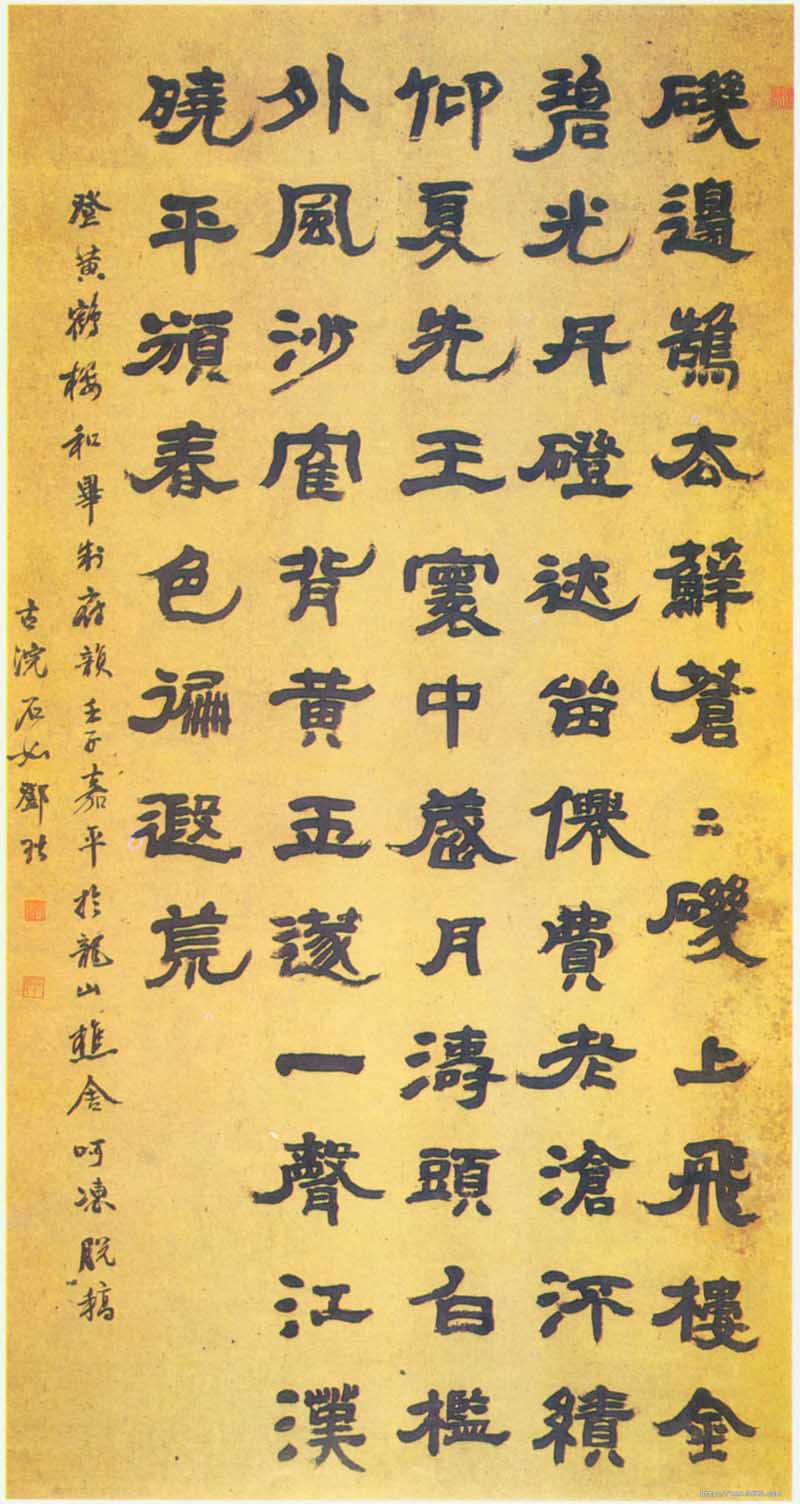 磯邊鵠去蘚蒼〻磯上飛樓金
碧光丹磴迹留僊費老滄洀績
仰夏先王寰中歲月濤頭白檻
外風沙寉背黃玉遂一聲江漢
曉平蘋春色漏遐荒
登黃鶴樓和畢制府韻壬子嘉平於龍山樵舍呵凍脫稿
古浣石如鄧琰